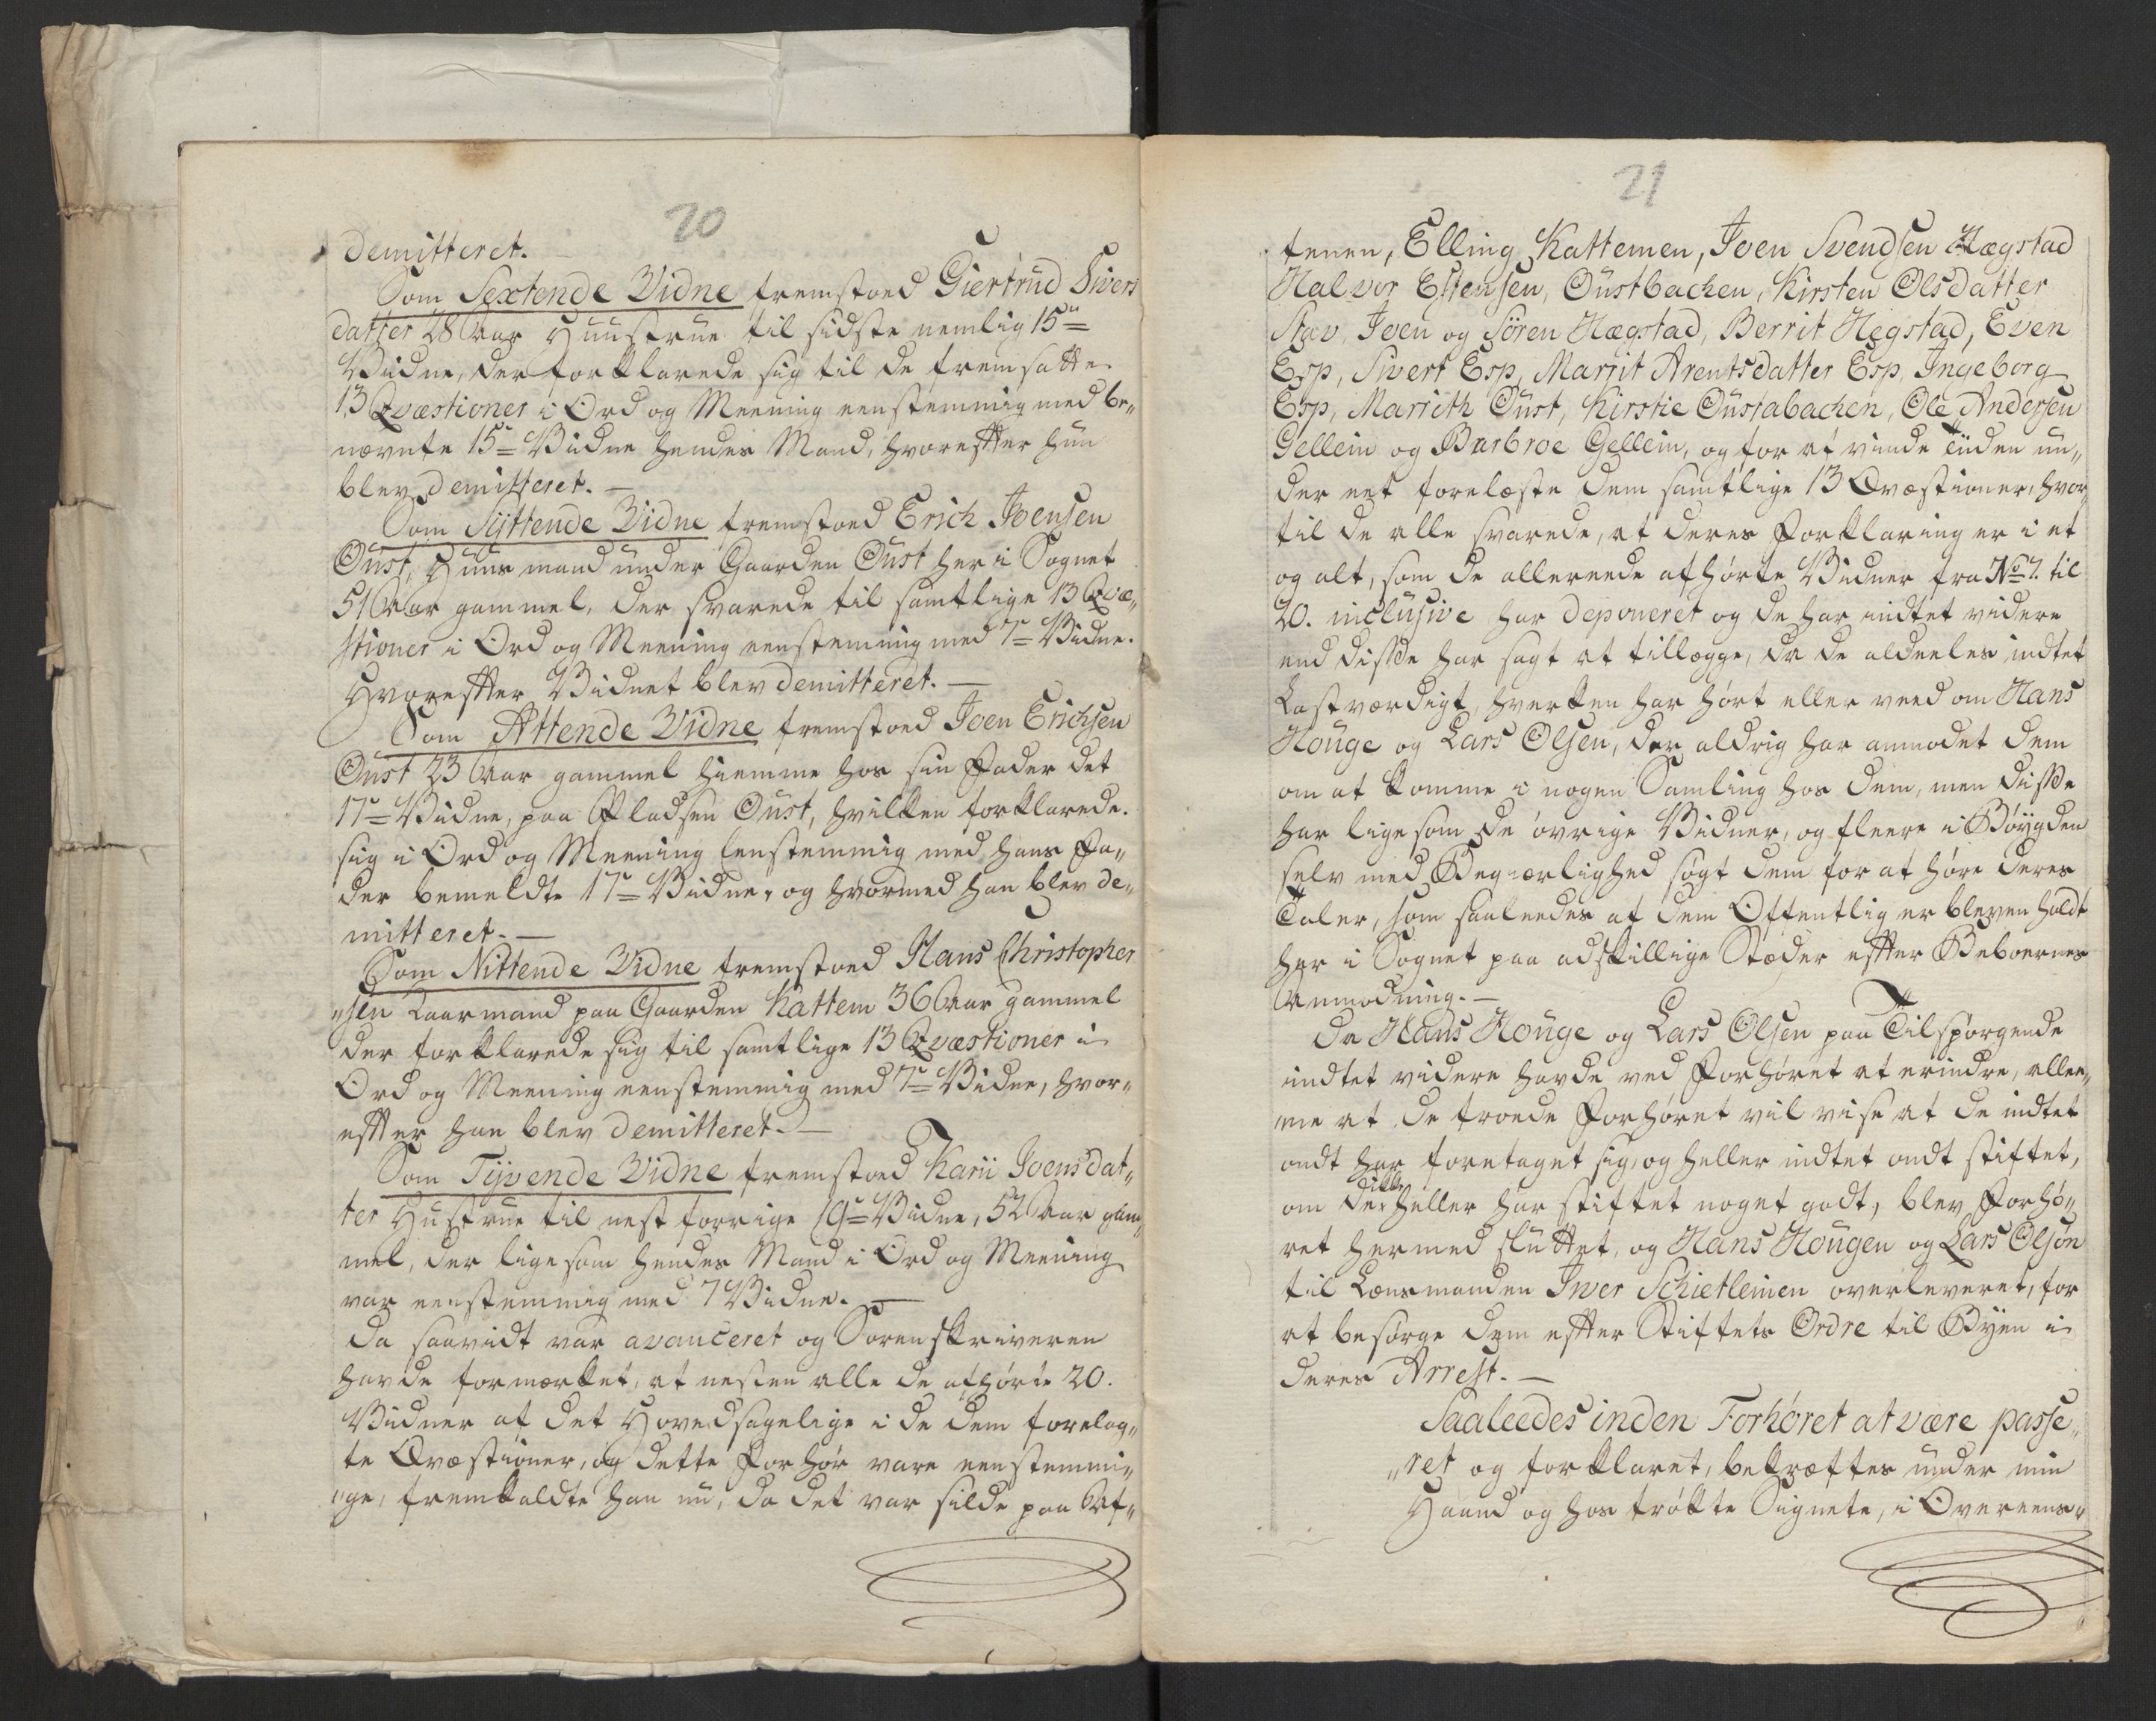 20
demitteret.
Som Sextende Vidne fremstoed Giertrud Sivers
datter 28 Aar Huustrue til sidste nemlig 15de
Vidne, der forklarede sig til de fremsatte
13 Qvæstioner i Ord og Meening eenstemmig med be„
nævnte 15de Vidne hendes Mand, hvorefter hun
blev demitteret. —
Som Syttende Vidne fremstoed Erich Joensen
Oust, Huusmand under Gaarden Oust her i Sognet
51 Aar gammel, der svarede til samtlige 13 Qvæ„
stioner i Ord og Meening eenstemmig med 7de Vidne.
Hvorefter Vidnet blev demitteret. —
Som Attende Vidne fremstoed Joen Erichsen
Oust 23 Aar gammel hiemme hos sin Fader det
17de Vidne, paa Pladsen Oust, hvilken forklarede
sig i Ord og Meening eenstemmig med hans Fa„
der bemeldte 17de Vidne, og hvormed han blev de„
mitteret. —
Som Nittende Vidne fremstoed Hans Christopher
„sen Laarmand paa Gaarden Kattem 36 Aar gammel
der forklarede sig til samtlige 13 Qvæstioner i
Ord og Meening eenstemmig med 7de Vidne, hvor„
efter han blev demitteret. —
Som Tyvende Vidne fremstoed Karii Joensdat„
ter Hustrue til nest forrige 19de Vidne, 52 Aar gam„
mel, der ligesom hendes Mand i Ord og Meening
var eenstemmig med 7 Vidne. —
Da saavidt var avanceret og Sorenskriveren
havde formærket, at nesten alle de afhørte 20.
Vidner af det Hovedsagelige i de dem forelag„
te Qvæstioner, og dette Forhør vare eenstemmi„
„ge, fremkaldte han nu, da det var silde paa Af„
21
tenen, Elling Kattemen, Joen Svendsen Hægstad
Halvor Estensen, Oustbachen, Kirsten Olsdatter
Stav, Joen og Søren Hægstad, Berrit Hegstad, Even
Esp, Sivert Esp, Marrit Arentsdatter Esp, Ingeborg
Esp, Marrith Oust, Kirstie Oustabachen, Ole Andersen
Gellein og Barbroe Gellein, og for at vinde Tiiden un„
der eet forelæste dem samtlige 13 Qvæstioner, hvor„
til de alle svarede, at deres Forklaring er i et
og alt, som de allereede afhørte Vidner fra No 7. til
20. inclusive har deponeret og de har indtet videre
end disse har sagt at tillægge, da de aldeeles indtet
Lastværdigt, hverken har hørt eller veed om Hans
Houge og Lars Olsen, der aldrig har anmodet dem
om at komme i nogen Samling hos dem, men disse
har ligesom de øvrige Vidner, og fleere i Bøygden
selv med Begiærlighed søgt dem for at høre deres
Taler, som saaleedes af dem Offentlig er bleven holdt
her i Sognet paa adskillige Stæder efter Beboernes
Anmodning. —
Da Hans Houge og Lars Olsen paa Tilspørgende
indtet videre havde ved Forhøret at erindre, allee„
ene at de troede Forhøret vil vise at de indtet
ondt har foretaget sig, og heller indtet ondt stiftet,
om de ikke heller har stiftet noget godt, blev Forhø„
ret hermed sluttet, og Hans Hougen og Lars Olsøn
til Lænsmanden Iver Schietleinen overleveret, for
at besørge dem efter Stiftets Ordre til Byen i
deres Arrest. —
Saaleedes inden Forhøret at være passe„
„ret og forklaret, bekræftes under min
Haand og hos trøkte Signete, i Overeens„